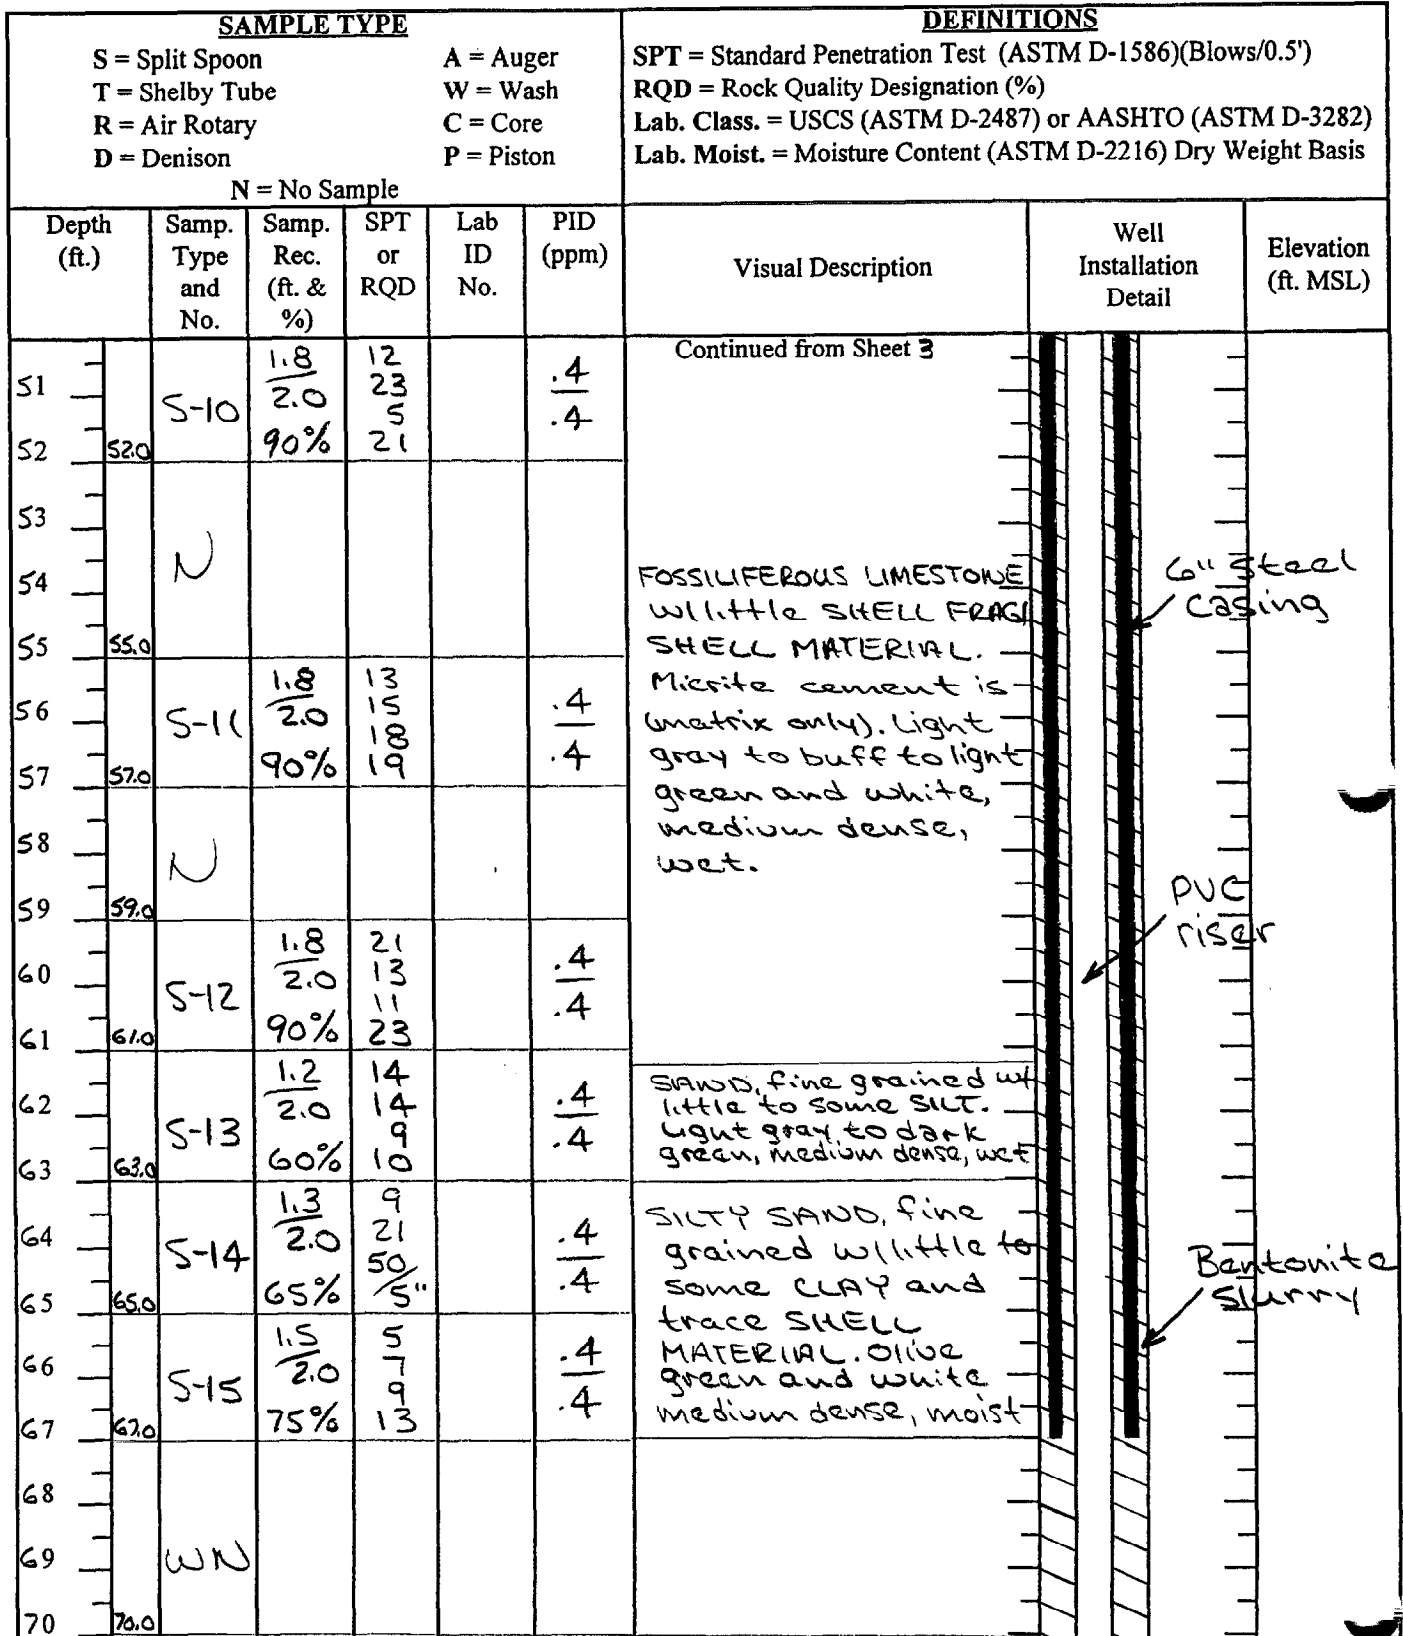 SAMPLE TYPE
S = Split Spoon A = Auger
T = Shelby Tube W = Wash
R = Air Rotary C = Core
D = Denison P = Piston
N = No Sample
DEFINITIONS
SPT = Standard Penetration Test (ASTM D-1586)(Blows/0.5')
RQD = Rock Quality Designation (%)
Lab. Class. = USCS (ASTM D-2487) or AASHTO (ASTM D-3282)
Lab. Moist. = Moisture Content (ASTM D-2216) Dry Weight Basis
Depth
(ft.)
Samp.
Type
and
No.
Samp.
Rec.
(ft. &
%)
SPT
or
RQD
Lab
ID
No.
PID
(ppm)
Visual Description
Well
Installation
Detail
Elevation
(ft. MSL)
Continued from Sheet 3
51
52
52.0
S-10
1.8
2.0
90%
12
23
5
21
.4
.4
53
54
55
55.0
N
56
57
57.0
S-11
1.8
2.0
90%
13
15
18
19
.4
.4
FOSSILIFEROUS LIMESTONE
w/little SHELL FRAG/
SHELL MATERIAL.
Micrite cement is
(matrix only). Light
gray to buff to light
green and white,
medium dense,
wet.
6" Steel
casing
58
59
59.0
N
PVC
riser
60
61
61.0
S-12
1.8
2.0
90%
21
13
11
23
.4
.4
62
63
63.0
S-13
1.2
2.0
60%
14
14
9
10
.4
.4
SAND, fine grained w/
little to some SILT.
Light gray to dark
green, medium dense, wet
64
65
65.0
S-14
1.3
2.0
65%
9
21
50
/5"
.4
.4
SILTY SAND, fine
grained w/little to
some CLAY and
trace SHELL
MATERIAL. Olive
green and white
medium dense, moist
Bentonite
slurry
66
67
67.0
S-15
1.5
2.0
75%
5
7
9
13
.4
.4
68
69
70
70.0
WN